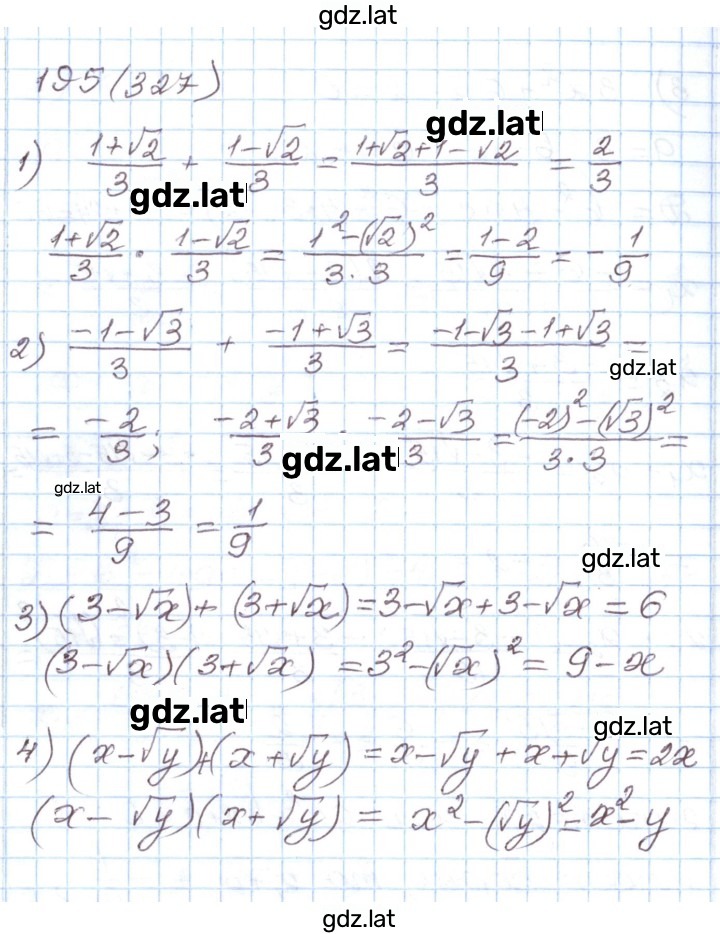 gdz.lat
195(327)
gdz.lat
1) (1+√2)/3 + (1-√2)/3 = (1+√2+1-√2)/3 = 2/3
gdz.lat
(1+√2)/3 · (1-√2)/3 = (1²-(√2)²)/(3·3) = (1-2)/9 = -1/9
2) (-1-√3)/3 + (-1+√3)/3 = (-1-√3-1+√3)/3 =
gdz.lat
= (-2)/3; (-2+√3)/3 · (-2-√3)/3 = ((-2)²-(√3)²)/(3·3) =
gdz.lat
gdz.lat
= (4-3)/9 = 1/9
gdz.lat
3) (3-√x)+(3+√x)=3-√x+3-√x=6
(3-√x)(3+√x)=3²-(√x)²=9-x
gdz.lat
gdz.lat
4) (x-√y)+(x+√y)=x-√y+x+√y=2x
(x-√y)(x+√y)=x²-(√y)²=x²-y
gdz.lat